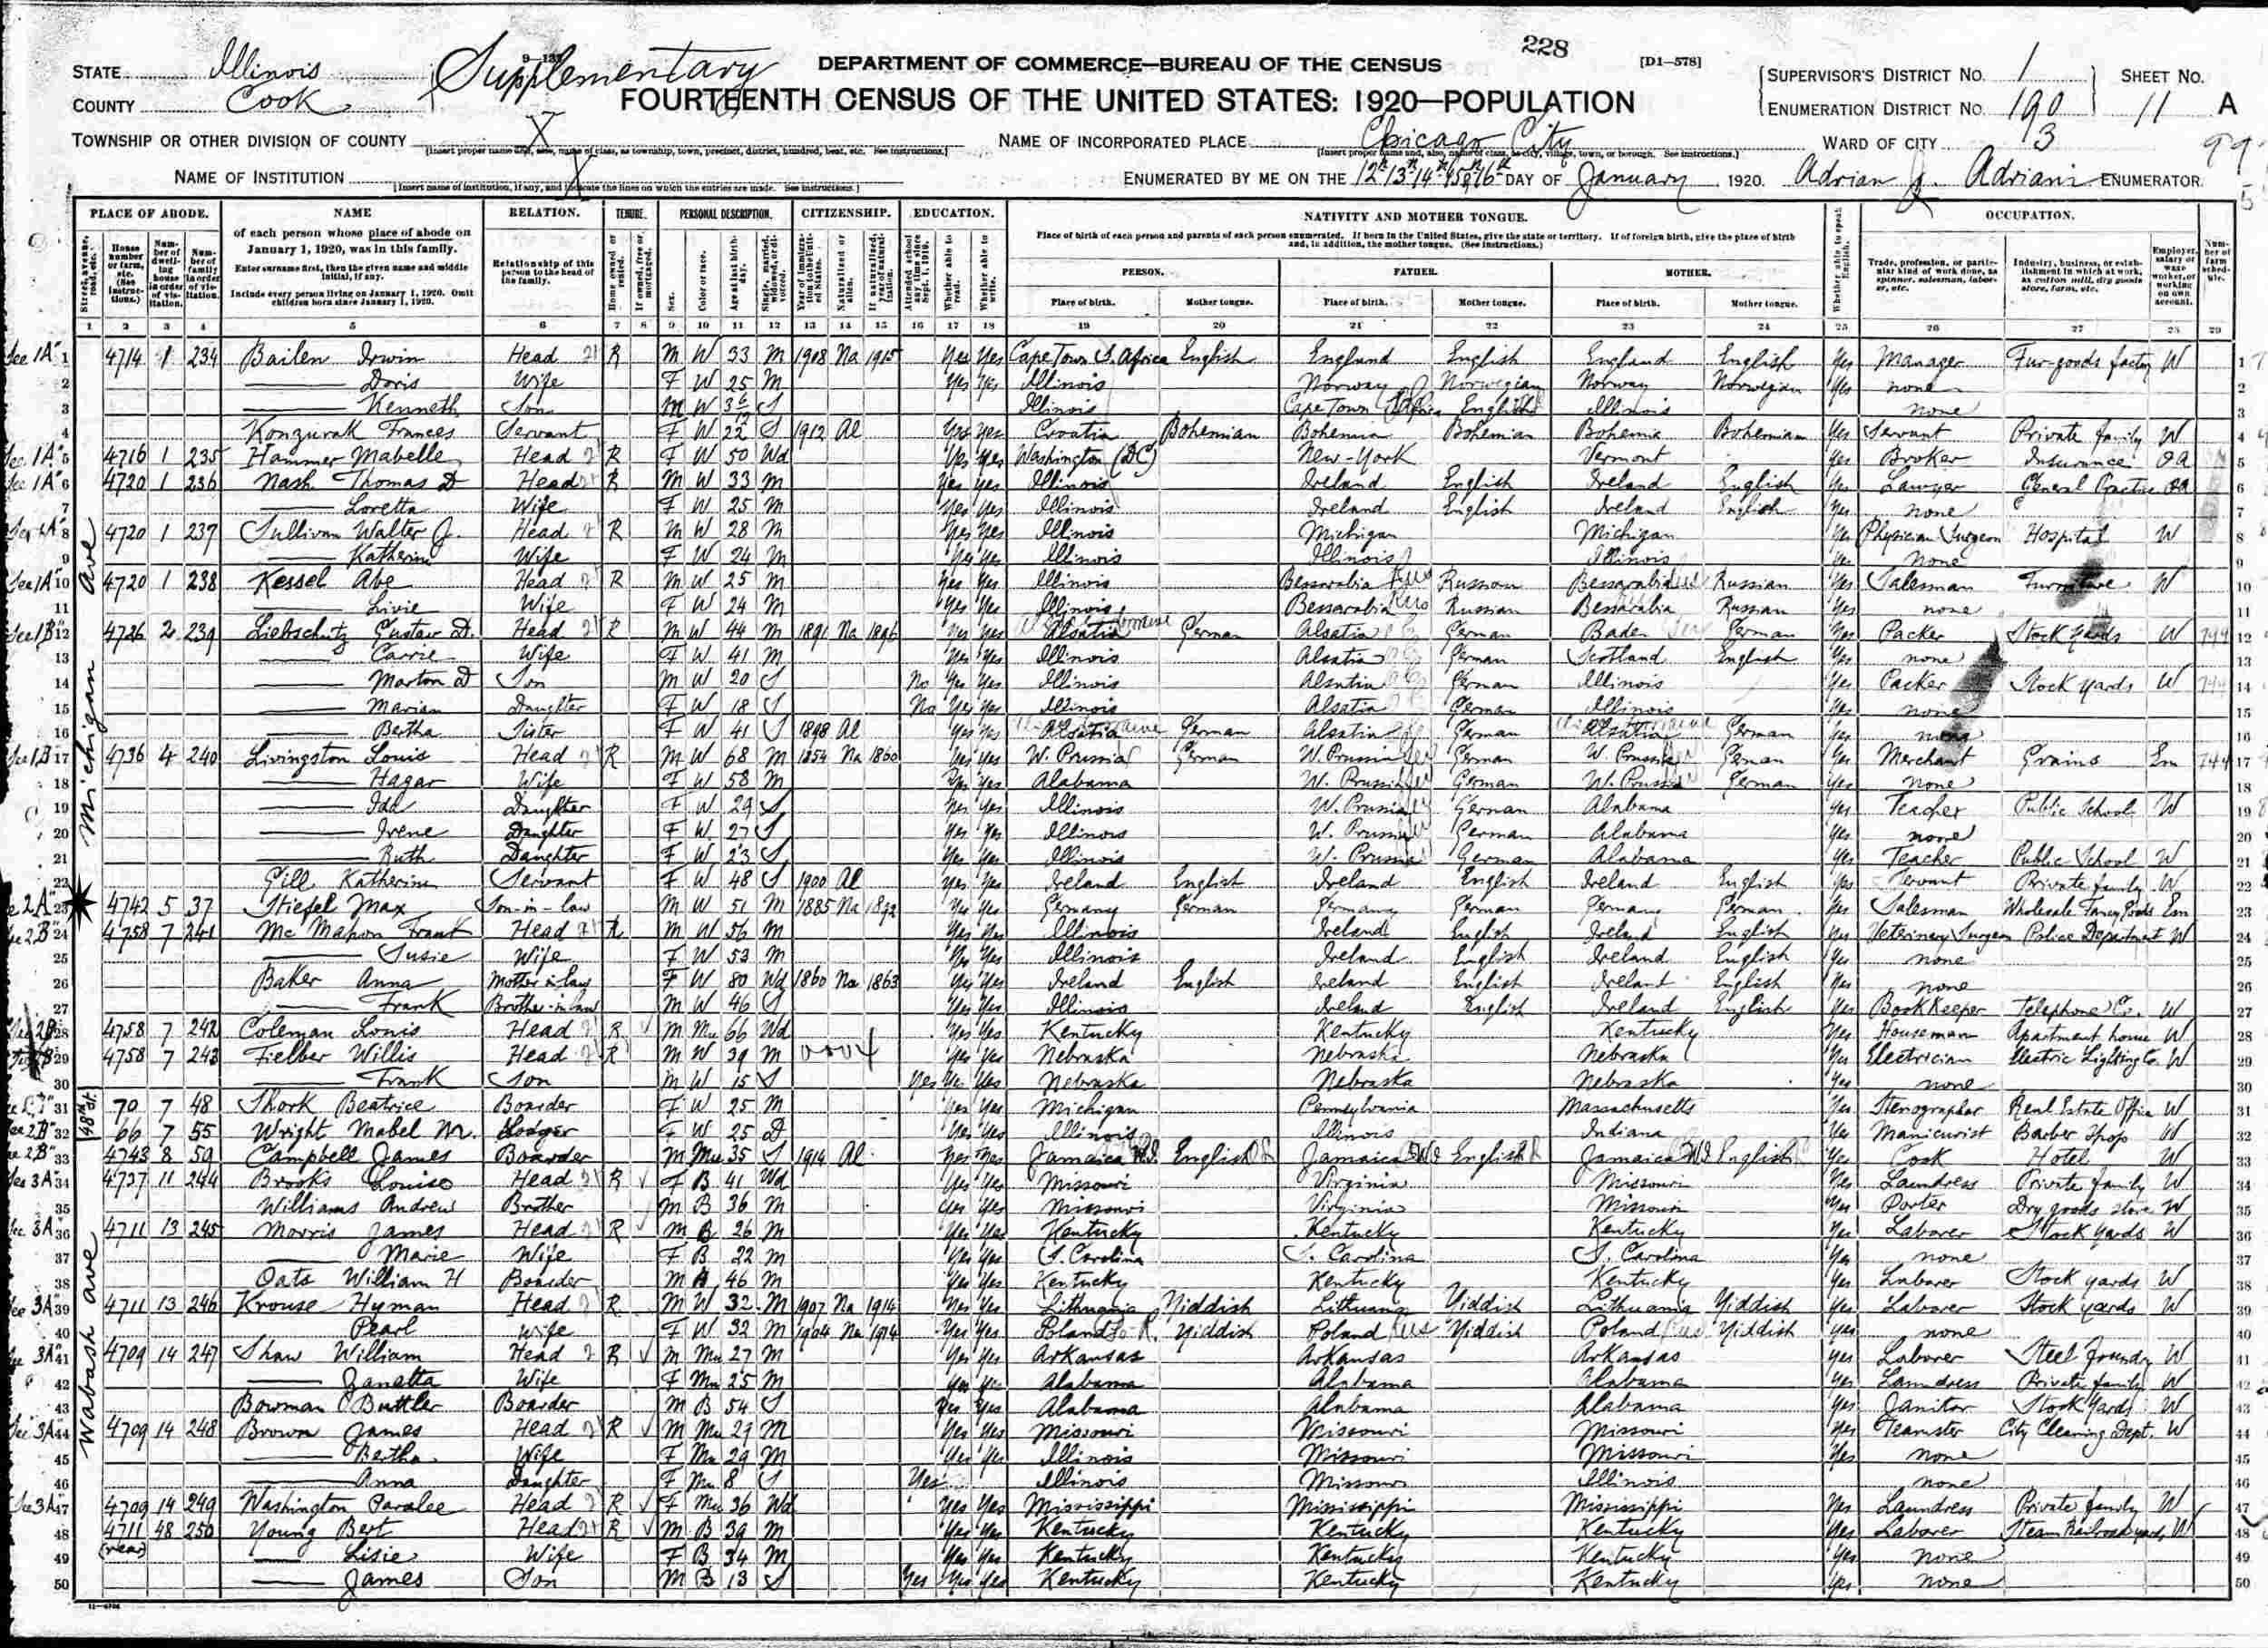 228
STATE Illinois
COUNTY Cook
Supplementary
DEPARTMENT OF COMMERCE—BUREAU OF THE CENSUS
[D1—578]
FOURTEENTH CENSUS OF THE UNITED STATES: 1920—POPULATION
SUPERVISOR'S DISTRICT No. 1
ENUMERATION DISTRICT No. 190
SHEET No. 11 A
TOWNSHIP OR OTHER DIVISION OF COUNTY X
NAME OF INCORPORATED PLACE Chicago City
WARD OF CITY 3
NAME OF INSTITUTION X
[Insert name of institution, if any, and indicate the lines on which the entries are made. See instructions.]
ENUMERATED BY ME ON THE 12th 13th 14th 15th 16th DAY OF January, 1920. Adrian J. Adriani ENUMERATOR.
PLACE OF ABODE. NAME RELATION. TENURE. PERSONAL DESCRIPTION. CITIZENSHIP. EDUCATION. NATIVITY AND MOTHER TONGUE. OCCUPATION.
of each person whose place of abode on January 1, 1920, was in this family.
Enter surname first, then the given name and middle initial, if any.
Include every person living on January 1, 1920. Omit children born since January 1, 1920.
Relationship of this person to the head of the family.
Place of birth of each person and parents of each person enumerated. If born in the United States, give the state or territory. If of foreign birth, give the place of birth and, in addition, the mother tongue. (See instructions.)
PERSON. FATHER. MOTHER.
Place of birth. Mother tongue. Place of birth. Mother tongue. Place of birth. Mother tongue.
1 2 3 4 5 6 7 8 9 10 11 12 13 14 15 16 17 18 19 20 21 22 23 24 25 26 27 28 29
Michigan Ave
1 4714 1 234 Bailen Irwin Head R M W 33 M 1908 Na 1915 Yes Yes Cape Town S. Africa English England English England English Yes Manager Fur-goods factory W
2 Doris Wife F W 25 M Yes Yes Illinois Norway Norwegian Norway Norwegian Yes none
3 Kenneth Son M W 3 6/12 S Illinois Cape Town English Illinois none
4 Frances Servant F W 22 S 1912 Al Yes Yes Croatia Bohemian Bohemia Bohemian Bohemia Bohemian Yes Servant Private family W
5 4716 1 235 Hammer Mabelle Head R F W 50 Wd Yes Yes Washington (DC) New-York Vermont Yes Broker Insurance OA
6 4720 1 236 Nash Thomas D Head R M W 33 M Yes Yes Illinois Ireland English Ireland English Yes Lawyer General Practice OA
7 Loretta Wife F W 25 M Yes Yes Illinois Ireland English Ireland English Yes none
8 4720 1 237 Sullivan Walter J. Head R M W 28 M Yes Yes Illinois Michigan Michigan Yes Physician Surgeon Hospital W
9 Katherine Wife F W 24 M Yes Yes Illinois Illinois Illinois Yes None
10 4720 1 238 Kessel Abe Head R M W 25 M Yes Yes Illinois Bessarabia Russian Bessarabia Russian Yes Salesman Furniture W
11 Livie Wife F W 24 M Yes Yes Illinois Bessarabia Russian Bessarabia Russian Yes none
12 4726 2 239 Liebschutz Gustav D. Head R M W 44 M 1891 Na 1896 Yes Yes Alsatia German Alsatia German Baden German Yes Packer Stock yards W
13 Carrie Wife F W 41 M Yes Yes Illinois Alsatia German Scotland English Yes none
14 Morton D Son M W 20 S No Yes Yes Illinois Alsatia German Illinois Yes Packer Stock yards W
15 Marian Daughter F W 18 S No Yes Yes Illinois Alsatia German Illinois Yes none
16 Bertha Sister F W 41 S 1898 Al Yes Yes Alsatia German Alsatia German Alsatia German Yes none
17 4736 4 240 Livingston Louis Head R M W 68 M 1854 Na 1860 Yes Yes W. Prussia German W. Prussia German W. Prussia German Yes Merchant Grains Em
18 Hagar Wife F W 58 M Yes Yes Alabama W. Prussia German W. Prussia German Yes None
19 Ida Daughter F W 29 S Yes Yes Illinois W. Prussia German Alabama Yes Teacher Public School W
20 Irene Daughter F W 27 S Yes Yes Illinois W. Prussia German Alabama Yes none
21 Ruth Daughter F W 23 S Yes Yes Illinois W. Prussia German Alabama Yes Teacher Public School W
22 Gill Katherine Servant F W 48 S 1900 Al Yes Yes Ireland English Ireland English Ireland English Yes Servant Private family W
23 4742 5 37 Stiefel Max Son-in-law M W 51 M 1885 Na 1892 Yes Yes Germany German Germany German Germany German Yes Salesman Wholesale Fancy Goods Em
24 4758 7 241 Mc Mahon Frank Head R M W 56 M Yes Yes Illinois Ireland English Ireland English Yes Veterinary Surgeon Police Department W
25 Susie Wife F W 53 M Yes Yes Illinois Ireland English Ireland English Yes none
26 Baker Anna Mother in law F W 80 Wd 1860 Na 1863 Yes Yes Ireland English Ireland English Ireland English Yes none
27 Frank Brother-in-law M W 46 S Yes Yes Illinois Ireland English Ireland English Yes Book Keeper Telephone Co. W
28 4758 7 242 Coleman Louis Head R M Mu 66 Wd Yes Yes Kentucky Kentucky Kentucky Yes Houseman Apartment house W
29 4758 7 243 Fielber Willis Head R M W 39 M Yes Yes Nebraska Nebraska Nebraska Yes Electrician Electric Lighting Co. W
30 Frank Son M W 15 S Yes Yes Yes Nebraska Nebraska Nebraska Yes none
48th St.
31 70 7 48 Shork Beatrice Boarder F W 25 M Yes Yes Michigan Pennsylvania Massachusetts Yes Stenographer Real Estate Office W
32 66 7 55 Wright Mabel M. Lodger F W 25 D Yes Yes Illinois Illinois Indiana Yes Manicurist Barber Shop W
Wabash ave
33 4743 8 59 Campbell James Boarder M Mu 35 S 1914 Al Yes Yes Jamaica W.I. English Jamaica W.I. English Jamaica W.I. English Yes Cook Hotel W
34 4737 11 244 Brooks Louise Head R F B 41 Wd Yes Yes Missouri Virginia Missouri Yes Laundress Private family W
35 Williams Andrew Brother M B 36 M Yes Yes Missouri Virginia Missouri Yes Porter Dry goods store W
36 4711 13 245 Morris James Head R M B 26 M Yes Yes Kentucky Kentucky Kentucky Yes Laborer Stock yards W
37 Marie Wife F B 22 M Yes Yes S. Carolina S. Carolina S. Carolina Yes none
38 Oats William H Boarder M B 46 M Yes Yes Kentucky Kentucky Kentucky Yes Laborer Stock yards W
39 4711 13 246 Krouse Hyman Head R M W 32 M 1907 Na 1914 Yes Yes Lithuania Yiddish Lithuania Yiddish Lithuania Yiddish Yes Laborer Stock yards W
40 Pearl Wife F W 32 M 1904 Na 1914 Yes Yes Poland Yiddish Poland Yiddish Poland Yiddish Yes none
41 4709 14 247 Shaw William Head R M Mu 27 M Yes Yes Arkansas Arkansas Arkansas Yes Laborer Steel foundry W
42 Zanatta Wife F Mu 25 M Yes Yes Alabama Alabama Alabama Yes Laundress Private family W
43 Bowman Buttler Boarder M B 54 S Yes Yes Alabama Alabama Alabama Yes Janitor Stock yards W
44 4709 14 248 Brown James Head R M Mu 29 M Yes Yes Missouri Missouri Missouri Yes Teamster City Cleaning Dept. W
45 Bertha Wife F Mu 29 M Yes Yes Illinois Missouri Missouri Yes none
46 Anna Daughter F Mu 8 S Yes Illinois Missouri Illinois none
47 4709 14 249 Washington Paralee Head R F Mu 36 Wd Yes Yes Mississippi Mississippi Mississippi Yes Laundress Private family W
48 4711 48 250 Young Bert Head R M B 39 M Yes Yes Kentucky Kentucky Kentucky Yes Laborer Steam Railroad yards W
49 (rear) Lisie Wife F B 34 M Yes Yes Kentucky Kentucky Kentucky Yes none
50 James Son M B 13 S Yes Yes Yes Kentucky Kentucky Kentucky Yes none